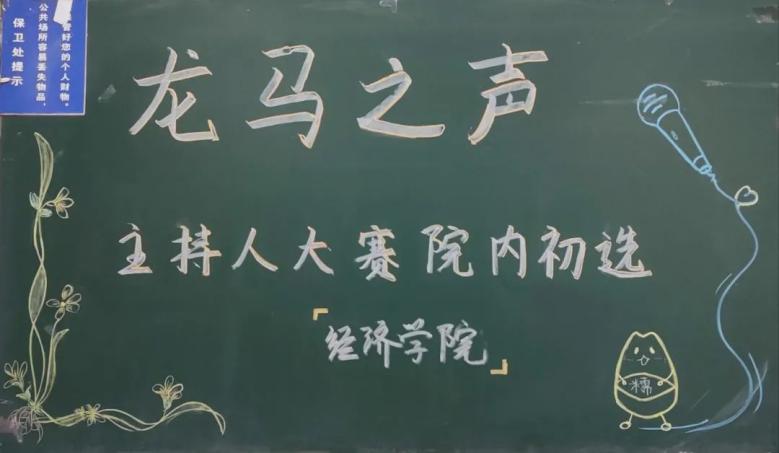 保卫处提示
公共场所容易丢失物品，
管好您的个人财物。
龙马之声
主持人大赛院内初选
「经济学院」
糯